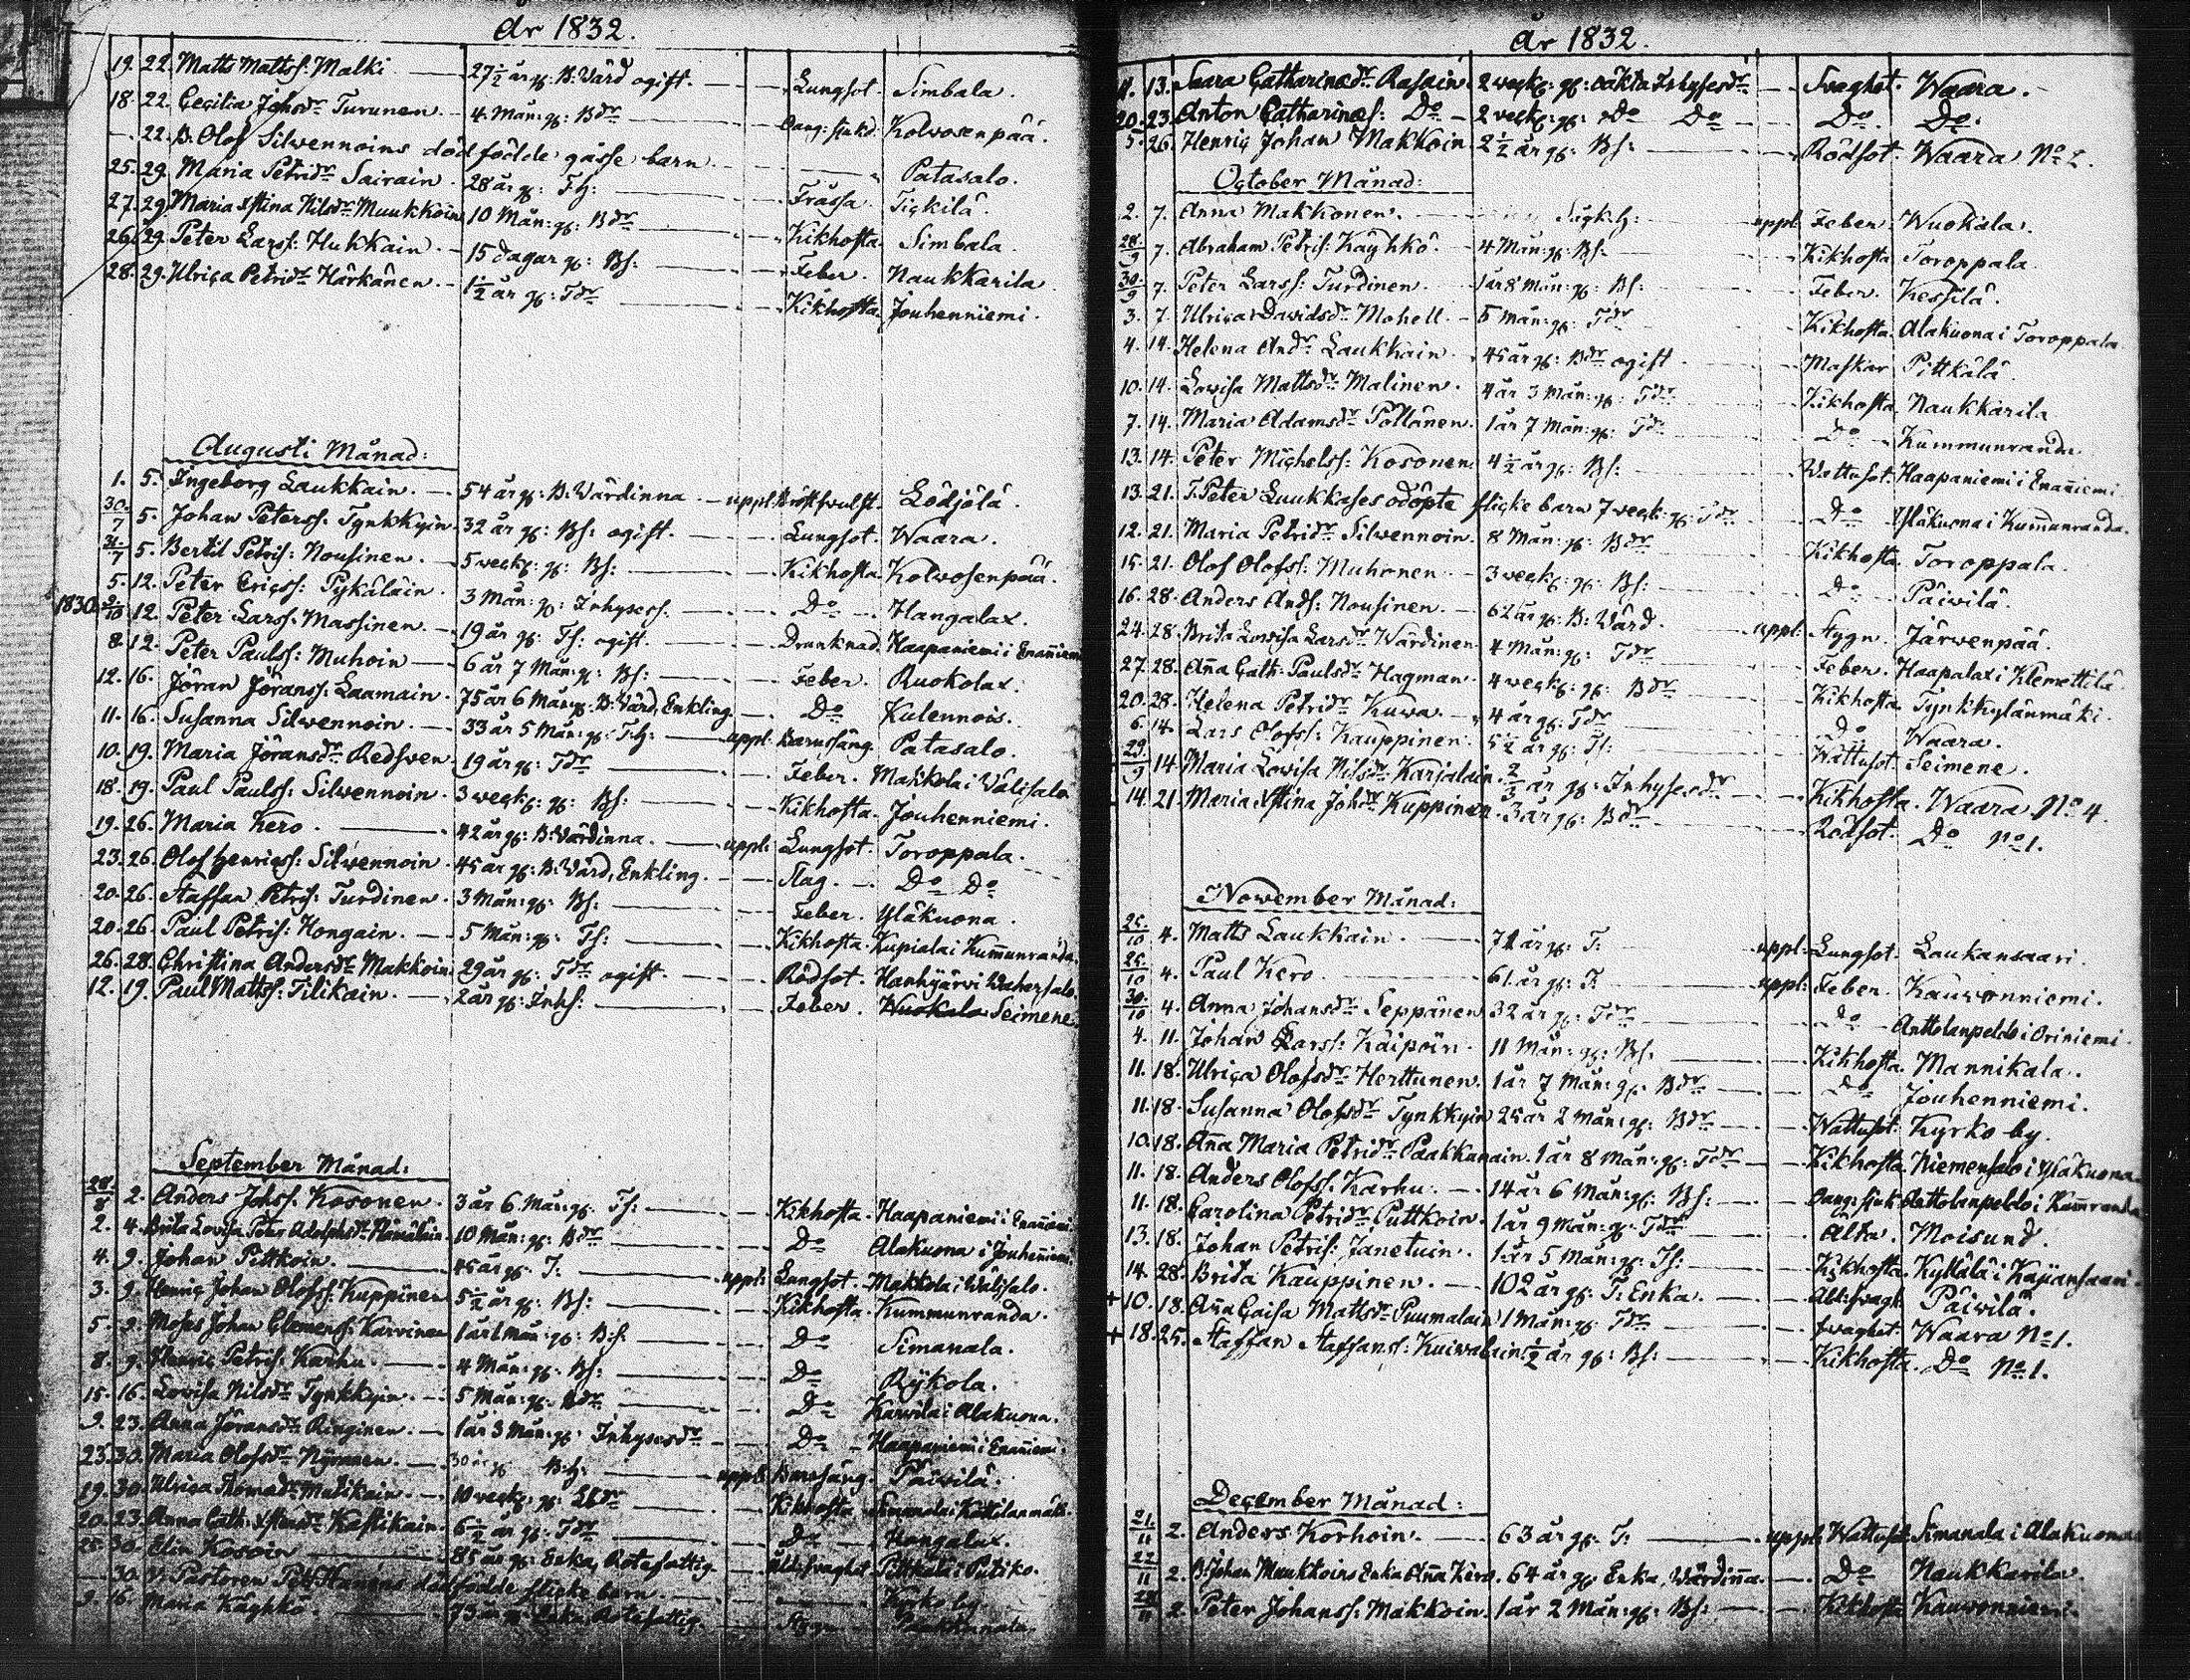 År 1832.
19. 22. Matts Mattss: Malki 27½ år g: B: Värd ogift. Lungsot. Simbala.
18. 22. Cecilia Johsdr Turunen 4 Mån: g: Bdr Kolwosenpää.
22. B. Olof Silwennoins död födde gåsse barn Patasalo.
25. 29. Maria Petridr Sairain 28 år g: T.H: Fråssa Tickilä.
27. 29. Maria Xstina Nilsdr Muukkoin 10 Mån: g: Bdr Kikhosta Simbala.
26. 29. Peter Larss: Hukkain 15 dagar g: Bs: Feber. Naukkarila.
28. 29. Ulrica Petridr Härkänen 1½ år g: Tdr Kikhosta Jouhenniemi.
Augusti Månad:
1. 5. Ingeborg Laukkain. 54 år g: B: Värdinna uppl: Lödjölä.
30/7 5. Johan Peterss: Tynkkyin. 32 år g: Bs: ogift. Lungsot. Waara.
31/7 5. Bertil Petris: Nousinen. 5 weck: g: Bs: Kikhosta. Kolwosenpää.
5. 12. Peter Ericss: Pykäläin. 3 Mån: g: Inhysess. Do Hangalax.
1830 2/10 12. Peter Larss: Massinen. 19 år g: Ts: ogift. Drunknad. Haapaniemi i Enanniemi
8. 12. Peter Paulss: Muhoin 6 år 7 Mån: g: Bs: Feber. Ruokolax.
12. 16. Jöran Jöranss: Laamain. 75 år 6 Mån: g: B: Värd, Enkling. Do Kulennois.
11. 16. Susanna Silwennoin. 33 år 5 Mån: g: T.H: uppl. Barnsäng. Patasalo.
10. 19. Maria Jöransdr Redsven 19 år g: Tdr Feber. Makkola i Wälisalo
18. 19. Paul Paulss: Silwennoin. 3 weck: g: Bs: Kikhosta. Jouhenniemi.
19. 26. Maria Kero. 42 år g: B: Värdinna. uppl: Lungsot. Toroppala.
23. 26. Olof Henricss: Silwennoin. 45 år g: B: Värd, Enkling. Slag. Do Do
20. 26. Staffan Petris: Turdinen. 3 Mån: g: Bs: Feber. Yläkuona.
20. 26. Paul Petris: Hongain. 5 Mån: g: Ts: Kikhosta. Kupiala i Kummunranda.
26. 28. Christina Andersdr Makkoin 29 år g: Tdr ogift. Rödsot. Hanhijärvi Wahersalo.
12. 19. Paul Mattss: Tilikain. 2 år g: Inhs: Feber. Wuokala Seimene.
September Månad:
28/8 2. Anders Johss: Kosonen. 3 år 6. Mån: g: Ts: Kikhosta. Haapaniemi i Enanniemi
2. 4. Brita Lovisa Peter Adolphsdr 10 Mån: g: Bdr Do Alakuona i Jouhenniemi
4. 9. Johan Pittkoin. 45 år g: T: uppl: Lungsot. Makkola i Wälisalo.
3. 9. Henric Johan Olofss: Kuppinen 5½ år g: Bs: Kikhosta. Kummunranda.
5. 9. Moses Johan Clemenss: Karvinen 1 år 1 Mån: g: Bs: Do Simanala.
8. 9. Henric Petris: Karhu. 4 Mån: g: Bs: Do Rykola.
15. 16. Lovisa Nilsdr Tynkkyin. 5 Mån: g: Bdr Do Karvila i Alakuona.
9. 23. Anna Jöransdr Ringinen. 1 år 3 Mån: g: Inhysesdr Do Haapaniemi i Enanniemi.
23. 30. Maria Olofsdr Nyrönen. 30 år g: B.H: uppl: Barnsäng. Päiwilä.
19. 30. Ulrica Thomadr Mutikain. 10 weck: g: Kikhosta Simanala Kattilanmäki.
20. 23. Anna Cath: 6½ år g: Tdr Do Hangalax.
25. 30. Elin Kosoin 85 år g: Enka, Rotefattig. Pittkälä i Putiko.
30. V. Pastoren Petr Hanéns dödfödde flicke barn. Kyrko by.
9. 16. Maria Käyhkö. 73 år g: Enka, Rotefattig. Pakkinala.
År 1832.
11. 13. Saara Catharinædr Rasain 2 weck: g: oäkta Inhysesdr Svaghet. Waara.
20. 23. Anton Catharinæs: Do 2 weck: g: Do Do Do. Do.
5. 26. Henric Johan Makkoin 2½ år g: Bs: Rödsot. Waara No 2.
October Månad:
2. 7. Anna Makkonen. uppl. Feber. Wuokala.
28/9 7. Abraham Petris: Käyhkö. 4 Mån: g: Bs: Kikhosta Toroppala.
30/9 7. Peter Larss: Turdinen. 1 år 8 Mån: g: Bs: Feber. Kessilä.
3. 7. Ulrica Davidsdr Mohell. 5 Mån: g: Tdr Kikhosta. Alakuona i Toroppala
4. 14. Helena Andr Laukkain. 45 år g: Bdr ogift Maskar Pittkälä.
10. 14. Lovisa Mattsdr Malinen. 4 år 3 Mån: g: Tdr Kikhosta. Naukkarila
7. 14. Maria Adamsdr Pöllänen. 1 år 7 Mån: g: Tdr Do Kummunranda
13. 14. Peter Michelss: Kosonen. 4½ år g: Bs: Wattusot. Haapaniemi i Enanniemi
13. 21. T. Peter Luukkases odöpte flicke barn 7 weck: g: Tdr Do Yläkuona i Kummunranda.
12. 21. Maria Petridr Silwennoin. 8 Mån: g: Bdr Kikhosta. Toroppala.
15. 21. Olof Olofss: Muhonen. 3 weck: g: Bs: Do Päiwilä.
16. 28. Anders Ands: Nousinen. 62 år g: B: Värd. uppl: Stygn. Järwenpää.
24. 28. Brita Lovisa Larsdr Wärdinen 4 Mån: g: Tdr Feber. Haapalax i Klemettilä.
27. 28. Anna Cath: Paulsdr Hagman. 4 weck: g: Bdr Kikhosta. Tynkkylänmäki.
20. 28. Helena Petridr Kuwa. 4 år g: Tdr Do Waara.
6. 14. Lars Olofss: Kauppinen. 5½ år g: Ts: Wattusot. Seimene.
29/9 14. Maria Lovisa Nilsdr Karjalain. år g: Inhysesdr Kikhosta. Waara No 4.
14. 21. Maria Xstina Johdr Kuppinen. 3 år g: Bdr Rödsot. Do No 1.
November Månad:
25/10 4. Matts Laukkain. 71 år g: T: uppl. Lungsot. Laukansaari.
25/10 4. Paul Kero 61 år g: T: uppl: Feber. Kauvonniemi.
30/10 4. Anna Johansdr Seppänen 32 år g: Tdr Do Anttolanpeldo i Oriniemi.
4. 11. Johan Larss: Kaipain. 11 Mån: g: Bs: Kikhosta. Mannikala.
11. 18. Ulrica Olofsdr Herttunen. 1 år 7 Mån: g: Bdr Do Jouhenniemi.
11. 18. Susanna Olofsdr Tynkkyin 25 år 2 Mån: g: Bdr Wattusot. Kyrko by.
10. 18. Anna Maria Petridr Paakkanain. 1 år 8 Mån: g: Tdr Kikhosta. Niemensalo i Yläkuona
11. 18. Anders Olofss: Karhu. 14 år 6 Mån: g: Bs: Anttolanpeldo i Kummranda
11. 18. Carolina Petridr Puttkoin. 1 år 9 Mån: g: Tdr Moisund.
13. 18. Johan Petris: Janetuin. 1 år 5 Mån: g: Ts: Kikhosta. Kykkälä i Kapansaari.
14. 28. Brita Kauppinen. 102 år g: T: Enka. Päiwilä.
+ 10. 18. Anna Caisa Mattsdr Puumalain 1 Mån: g: Tdr svaghet. Waara No 1.
+ 18. 25. Staffan Staffanss: Kuiwalain. ½ år g: Bs: Kikhosta. Do No 1.
December Månad:
21/11 2. Anders Korhoin. 63 år g: T: uppl: Wattusot. Simanala i Alakuona
22/11 2. B. Johan Muukkoins Enka Anna Kero. 64 år g: Enka, Wärdinna. Do Naukkarila.
28/11 2. Peter Johanss: Makkoin. 1 år 2 Mån: g: Bs: Kikhosta Kauvonniemi.